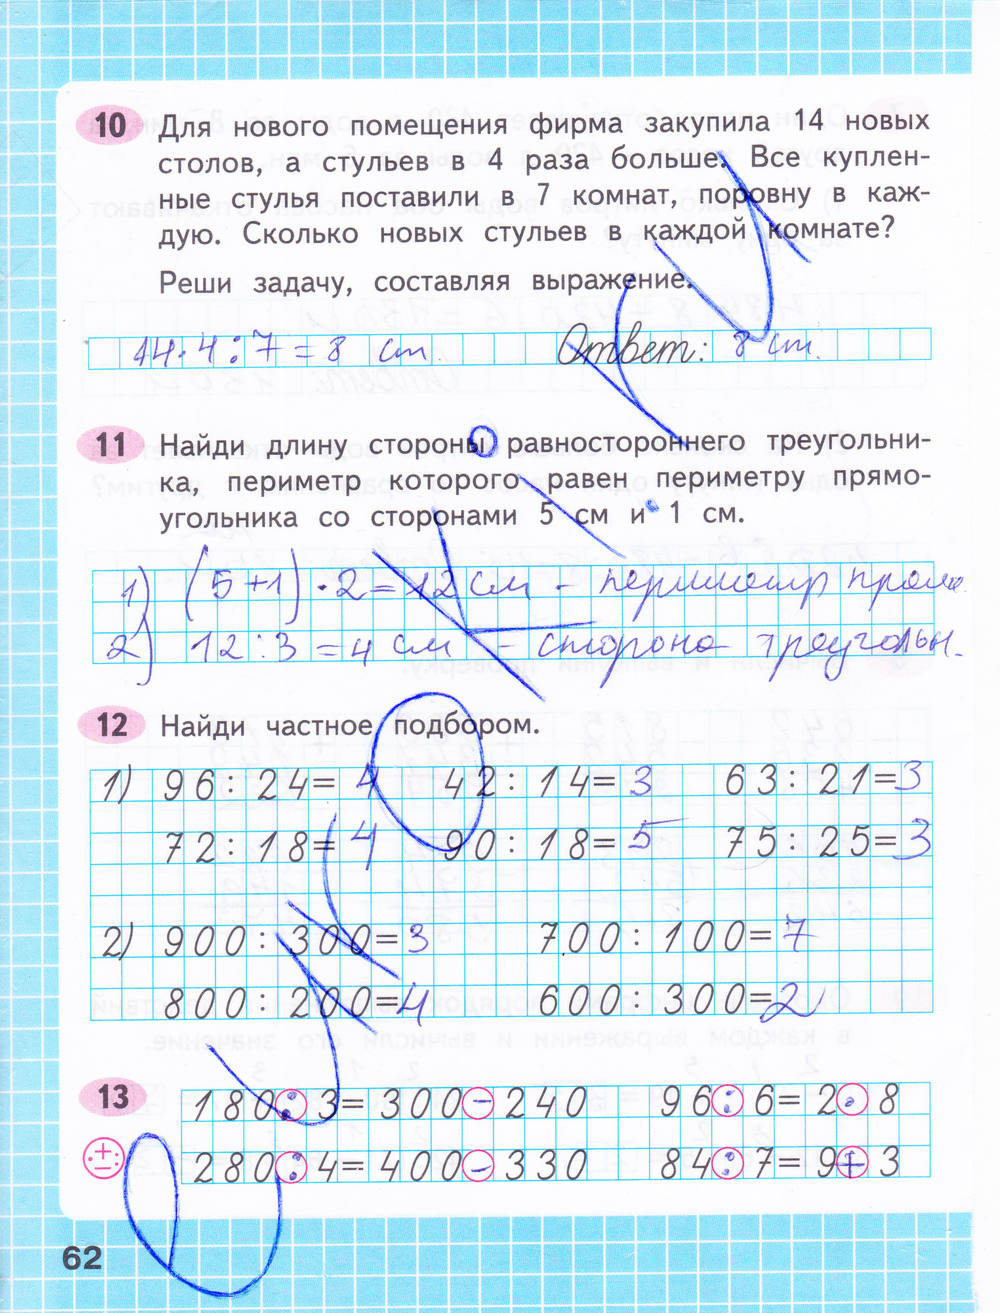 10 Для нового помещения фирма закупила 14 новых
столов, а стульев в 4 раза больше. Все куплен-
ные стулья поставили в 7 комнат, поровну в каж-
дую. Сколько новых стульев в каждой комнате?
Реши задачу, составляя выражение.
14·4:7=8 ст Ответ: 8 ст.
11 Найди длину стороны равностороннего треугольни-
ка, периметр которого равен периметру прямо-
угольника со сторонами 5 см и 1 см.
1) (5+1)·2=12 см - периметр прям.
2) 12:3=4 см - сторона треугольн.
12 Найди частное подбором.
1) 96:24=4 42:14=3 63:21=3
72:18=4 90:18=5 75:25=3
2) 900:300=3 700:100=7
800:200=4 600:300=2
13 180:3=300-240 96:6=2·8
280:4=400-330 84:7=9+3
62